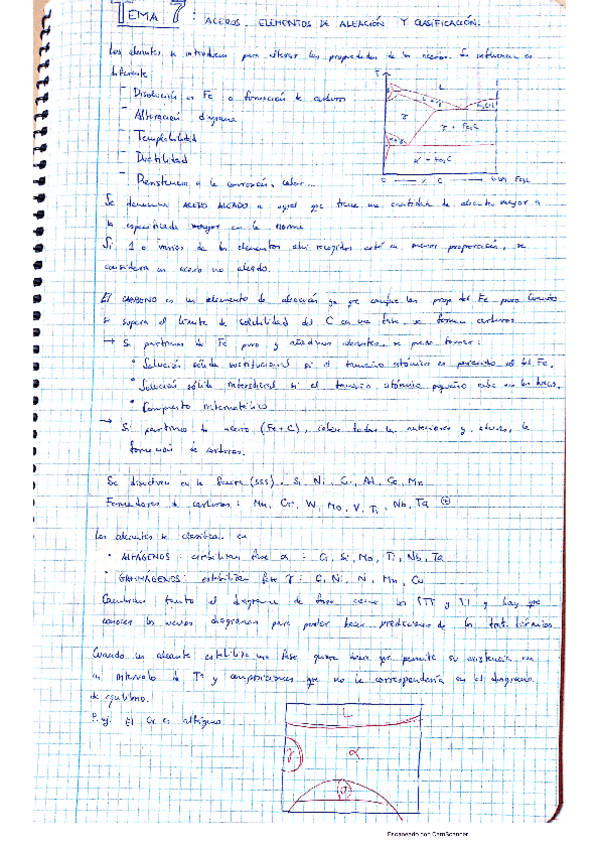 TEMA 7: ACEROS. ELEMENTOS DE ALEACIÓN Y CLASIFICACIÓN.
Los aleantes se introducen para alterar las propiedades de los aceros. Su influencia es
diferente
- Disolución en Fe o formación de carburos
- Alteración diagrama
- Templabilidad
- Ductilidad
- Resistencia a la corrosión, calor...
T
L
γ
γ + Fe3C
α + Fe3C
% C
Fe3C
Se denomina ACERO ALEADO a aquel que tiene una cantidad de aleante mayor a
la especificada en la norma
Si 1 o varios de los elementos ahí recogidos está en menor proporción, se
considera un acero no aleado.
El CARBONO es un elemento de aleación ya que cambia las prop del Fe puro. Cuando
se supera el límite de solubilidad del C en una fase, se forman carburos
→ Si partimos de Fe puro y añadimos aleantes, se puede formar:
• Solución sólida sustitucional si el tamaño atómico es parecido al del Fe.
• Solución sólida intersticial si el tamaño atómico pequeño cabe en los huecos.
• Compuesto intermetálico
→ Si partimos de acero (Fe+C), caben todas las anteriores y, además, la
formación de carburos.
Se disuelven en la ferrita (sss): Si, Ni, Cr, Al, Co, Mn
Formadores de carburos: Mn, Cr, W, Mo, V, Ti, Nb, Ta ⊕
Los aleantes se clasifican en
• ALFÁGENOS: estabilizan fase α: Cr, Si, Mo, Ti, Nb, Ta
• GAMMÁGENOS: estabilizan fase γ: C, Ni, N, Mn, Cu
Cambian tanto el diagrama de fases como los TTT y hay que
conocer los nuevos diagramas para poder hacer predicciones de los trat. térmicos
Cuando un aleante estabiliza una fase quiere decir que permite su existencia en
un intervalo de Tª y composiciones que no le correspondería en el diagrama
de equilibrio.
P. ej: El Cr es alfágeno
L
γ
α
σ
Escaneado con CamScanner